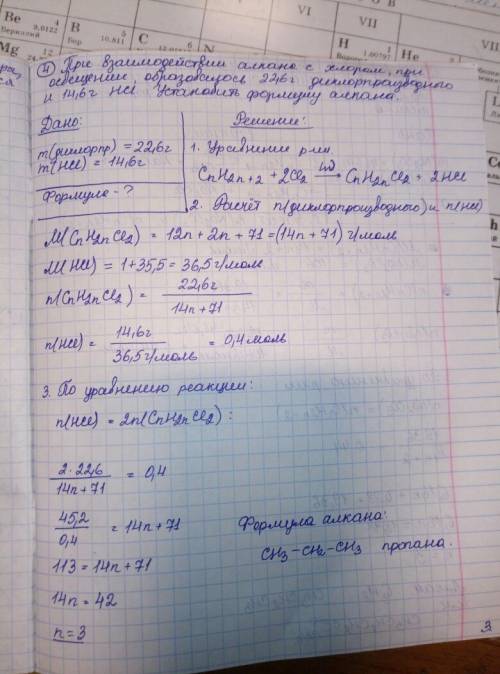 IV
V
VI
VII
VII
Be
4
9,0122
Бериллий
B
5
10,811
Бор
C
6
N
H
1
1,00797
Водород
He
Mg
12
4 При взаимодействии алкана с хлором, при
освещении, образовалось 22,6г дихлорпроизводного
и 14,6г HCl. Установить формулу алкана.
Дано:
m(дихлорпр) = 22,6г
m(HCl) = 14,6г
Формула - ?
Решение:
1. Уравнение р-ии.
CnH2n+2 + 2Cl2 —hν→ CnH2nCl2 + 2HCl
2. Расчёт n(дихлорпроизводного) и n(HCl)
M(CnH2nCl2) = 12n + 2n + 71 = (14n + 71) г/моль
M(HCl) = 1 + 35,5 = 36,5 г/моль
n(CnH2nCl2) = 22,6г / 14n + 71
n(HCl) = 14,6г / 36,5г/моль = 0,4 моль
3. По уравнению реакции:
n(HCl) = 2n(CnH2nCl2):
2·22,6 / 14n + 71 = 0,4
45,2 / 0,4 = 14n + 71
113 = 14n + 71
14n = 42
n = 3
Формула алкана:
CH3 – CH2 – CH3 пропана.
3